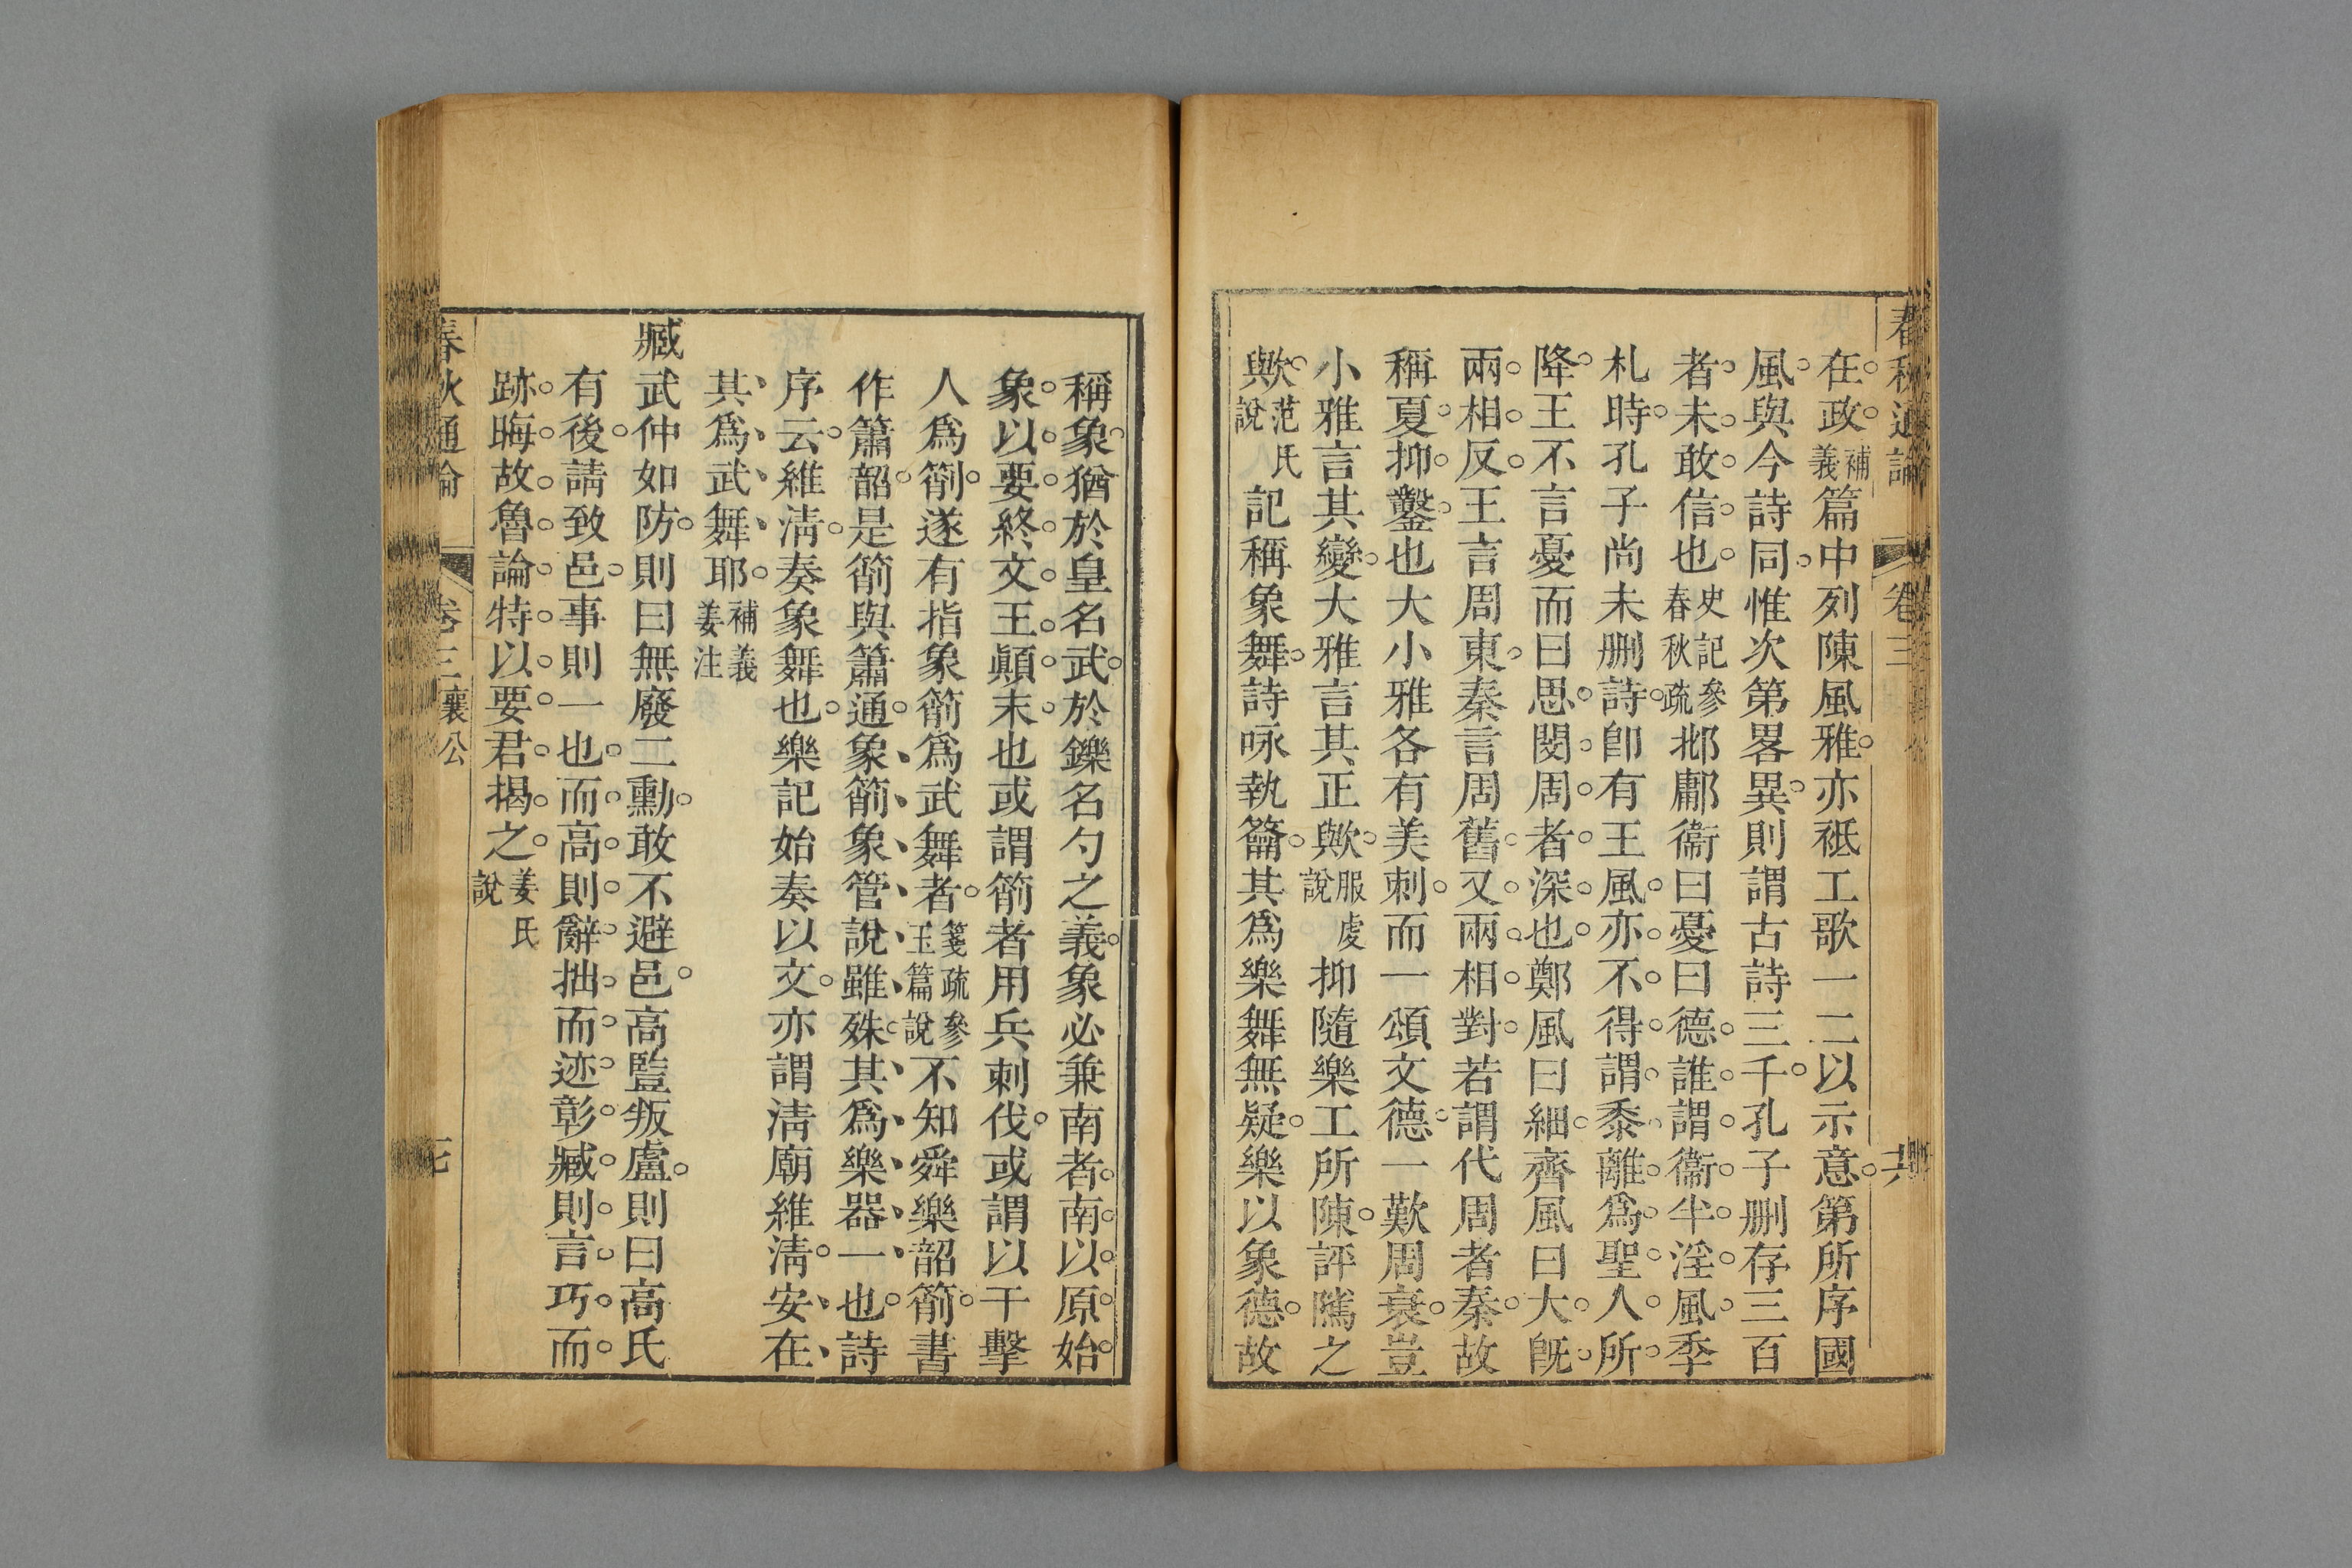 春秋通論 卷三
在政補義篇中列陳風雅亦祗工歌一二以示意第所序國
風與今詩同惟次第畧異則謂古詩三千孔子刪存三百
者未敢信也史記參春秋疏邶鄘衞曰憂曰德誰謂衞半淫風季
札時孔子尚未刪詩卽有王風亦不得謂黍離爲聖人所
降王不言憂而曰思閔周者深也鄭風曰細齊風曰大旣
兩相反王言周東秦言周舊又兩相對若謂代周者秦故
稱夏抑鑿也大小雅各有美刺而一頌文德一歎周衰豈
小雅言其變大雅言其正歟服虔說抑隨樂工所陳評隲之
歟范氏說記稱象舞詩咏執籥其爲樂舞無疑樂以象德故
稱象猶於皇名武於鑠名勺之義象必兼南者南以原始
象以要終文王顚末也或謂箾者用兵刺伐或謂以干擊
人爲箾遂有指象箾爲武舞者箋疏參玉篇說不知舜樂韶箾書
作簫韶是箾與簫通象箾象管說雖殊其爲樂器一也詩
序云維淸奏象舞也樂記始奏以文亦謂淸廟維淸安在
其爲武舞耶補義姜注
臧武仲如防則曰無廢二勳敢不避邑高豎叛盧則曰高氏
有後請致邑事則一也而高則辭拙而迹彰臧則言巧而
跡晦故魯論特以要君揭之姜氏說
春秋通論 卷三 襄公